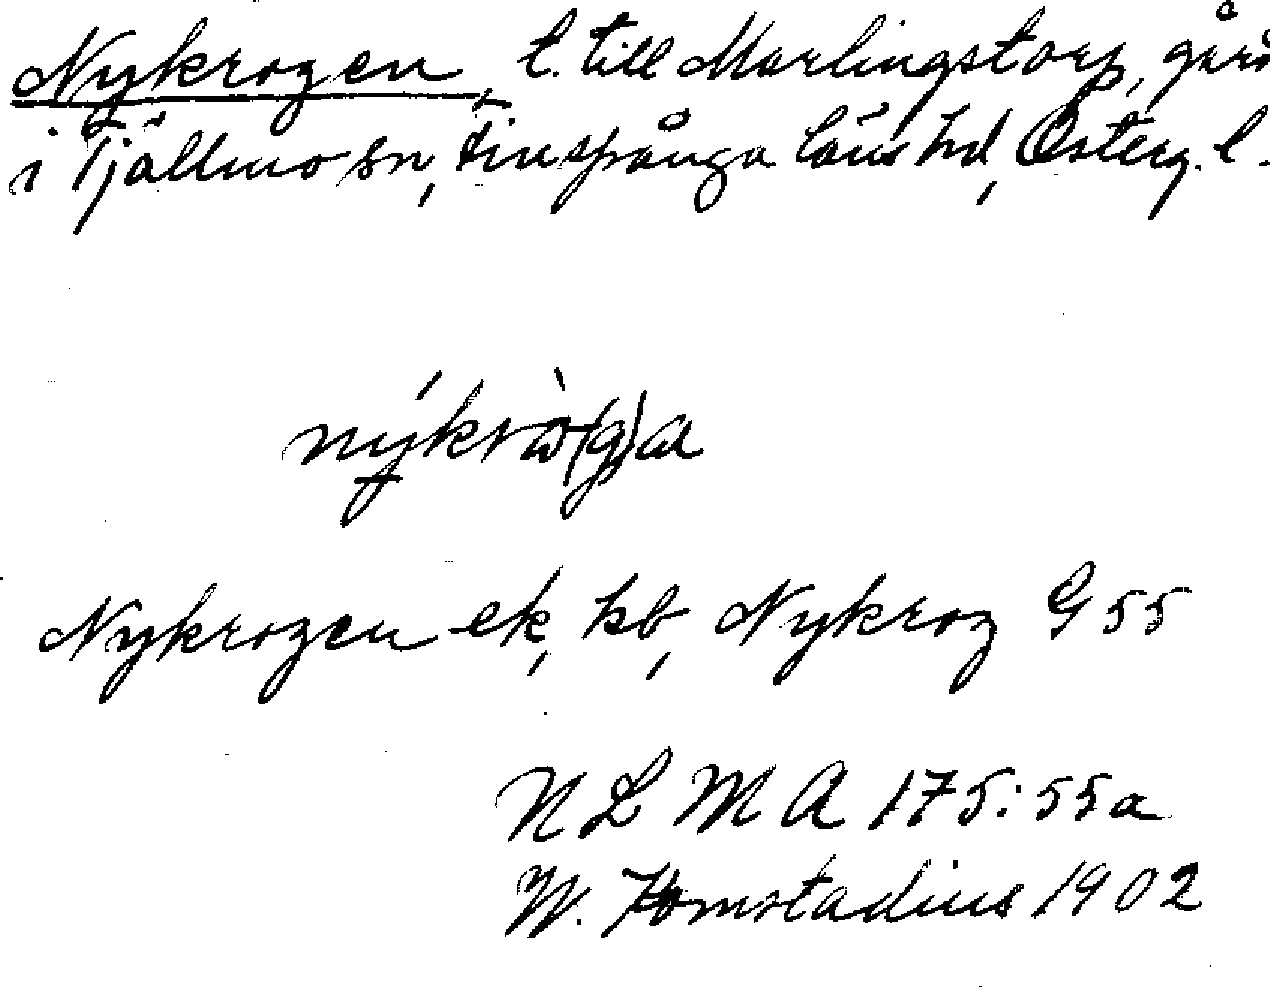 Nykrogen, t. till Marlingstorp, gård
i Tjällmo sn, Finspånga läns hd, Österg. l.
nýkrò(g)a
Nykrogen ek, kb, Nykrog G 55
N L M A 175:55a
W. Tomstadius 1902